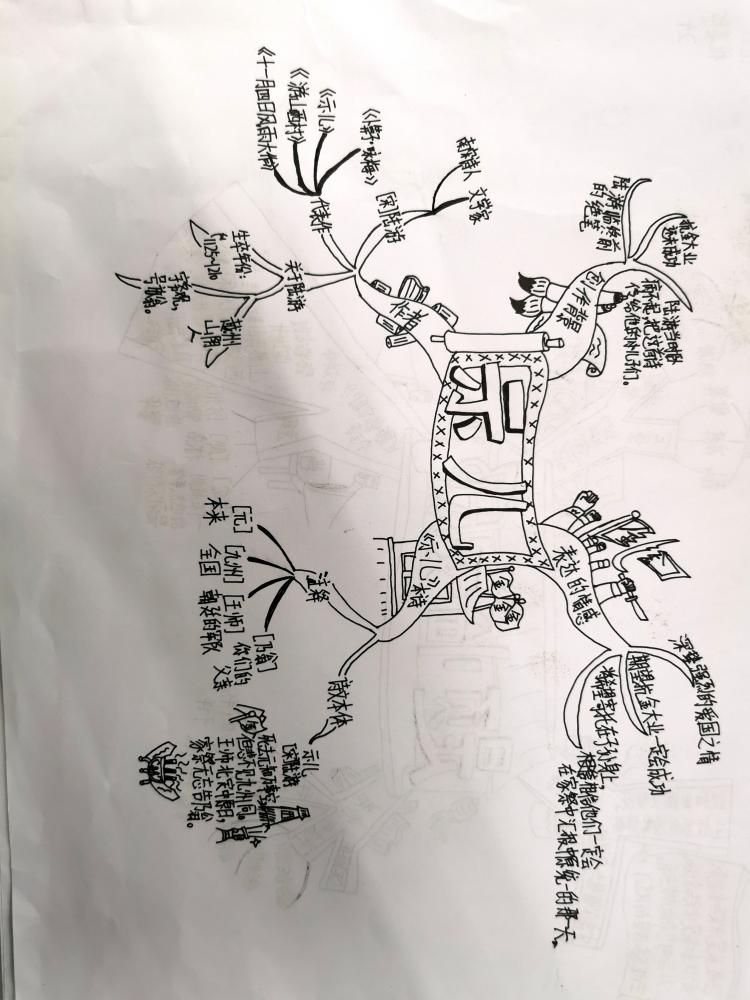 示儿
创作背景
抗金大业
未成功
陆游临终前
的绝笔
陆游当时卧
病不起,把这首诗
传给他的儿子们。
表达的情感
深挚强烈的爱国之情
期望抗金大业一定会成功
将希望寄托在子孙身上,
相信他们一定会
在家祭中汇报中原统一的那一天。
作者
[宋]陆游
南宋诗人
文学家
代表作
《卜算子·咏梅》
《示儿》
《游山西村》
《十一月四日风雨大作》
关于陆游
生卒年份:
1125~1210
字务观,
号放翁。
越州
山阴
人
《示儿》本诗
注释
[元]
本来
[九州]
全国
[王师]
朝廷的军队
[乃翁]
你们的
父亲
诗文本体
示儿
[宋]陆游
死去元知万事空,
但悲不见九州同。
王师北定中原日,
家祭无忘告乃翁。